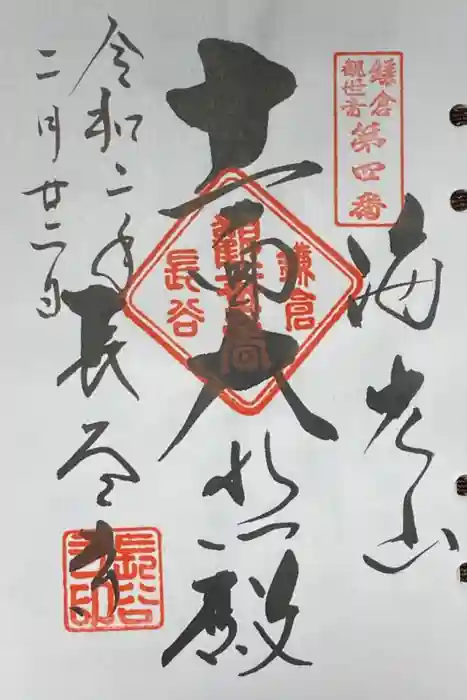 鎌倉
觀世音
第四番
海光山
十一面大悲殿
鎌倉
長谷
令和二年
二月廿二日
長谷寺
長谷
寺印